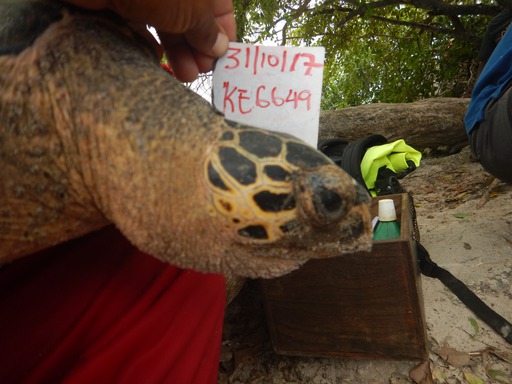 31/10/17
KE6649